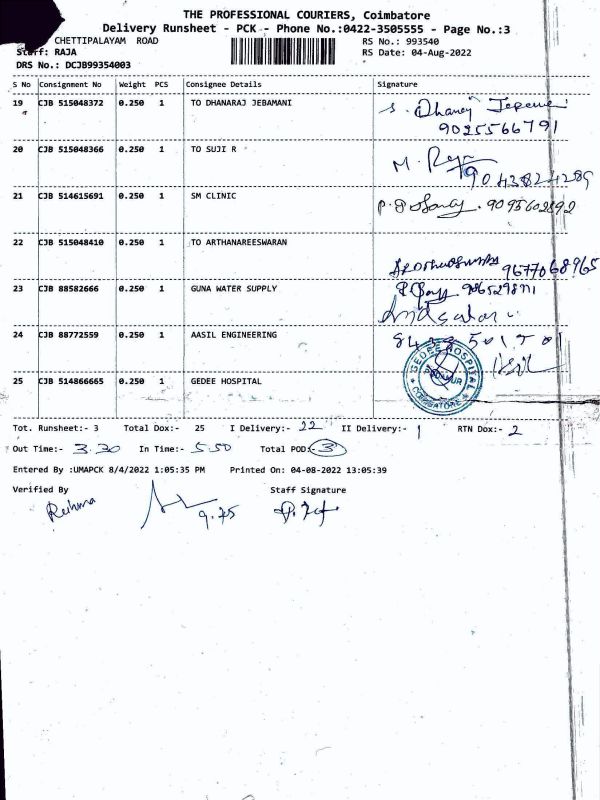 THE PROFESSIONAL COURIERS, Coimbatore
Delivery Runsheet - PCK - Phone No.:0422-3505555 - Page No.:3
CHETTIPALAYAM ROAD RS No.: 993540
Staff: RAJA RS Date: 04-Aug-2022
DRS No.: DCJB99354003
S No Consignment No Weight PCS Consignee Details Signature
19 CJB 515048372 0.250 1 TO DHANARAJ JEBAMANI
9025566791
20 CJB 515048366 0.250 1 TO SUJI R
M. Raja
21 CJB 514615691 0.250 1 SM CLINIC
9095602892
22 CJB 515048410 0.250 1 TO ARTHANAREESWARAN
9677068965
23 CJB 88582666 0.250 1 GUNA WATER SUPPLY
24 CJB 88772559 0.250 1 AASIL ENGINEERING
GEDEE HOSPITAL
COIMBATORE
25 CJB 514866665 0.250 1 GEDEE HOSPITAL
Tot. Runsheet:- 3 Total Dox:- 25 I Delivery:- 22 II Delivery:- 1 RTN Dox:- 2
Out Time:- 3.30 In Time:- 5.50 Total POD:- 3
Entered By :UMAPCK 8/4/2022 1:05:35 PM Printed On: 04-08-2022 13:05:39
Verified By Staff Signature
9.75